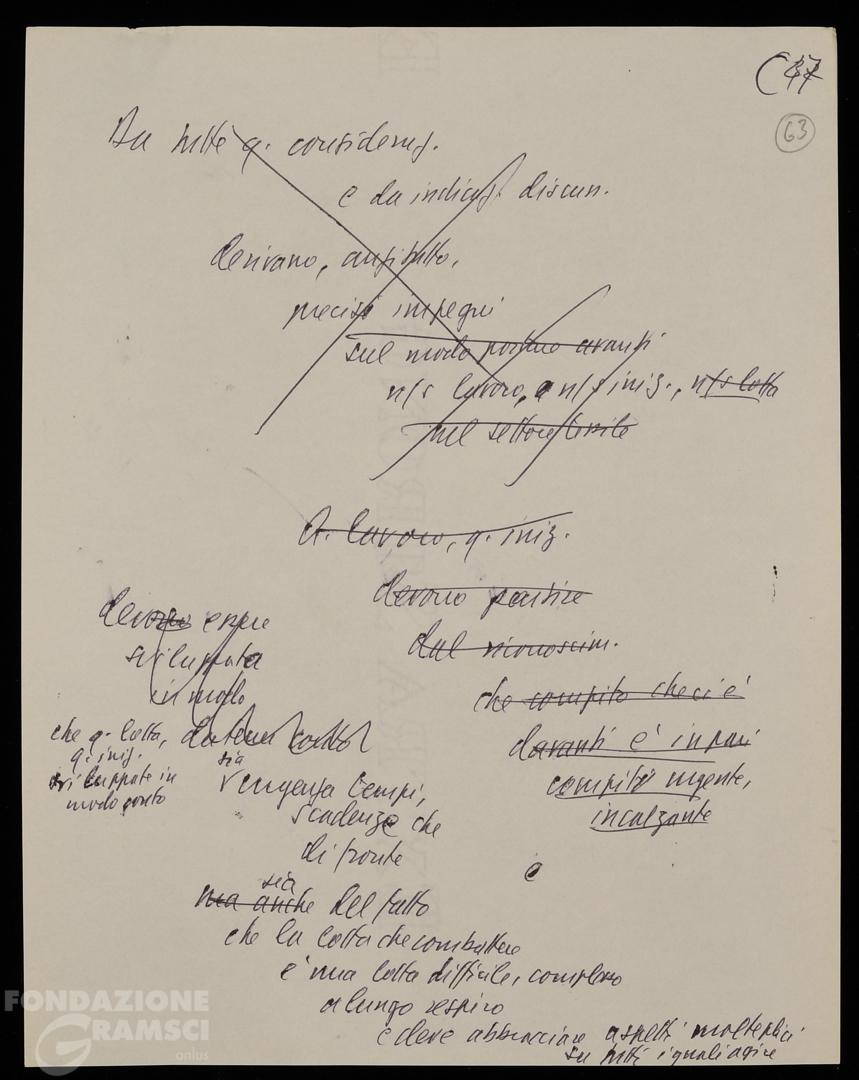 C 47
63
Da tutte q. consideraz.
e da indicaz. discuss.
derivano, anzitutto,
precisi impegni
sul modo portare avanti
n/s lavoro, n/s iniz., n/s lotta
nel settore tessile
lavoro, q. iniz.
devono partire
dal riconoscim.
che compito che ci è
davanti è in pari
compito urgente,
incalzante
devono essere
sviluppata
in modo
che q. lotta,
q. iniz.
sviluppate in
modo
sia
urgenza tempi,
scadenze che
di fronte
e
sia
ma anche del fatto
che la lotta che combattere
è una lotta difficile, complessa
a lungo respiro
e deve abbracciare aspetti molteplici
su tutti i quali agire
FONDAZIONE
GRAMSCI
onlus